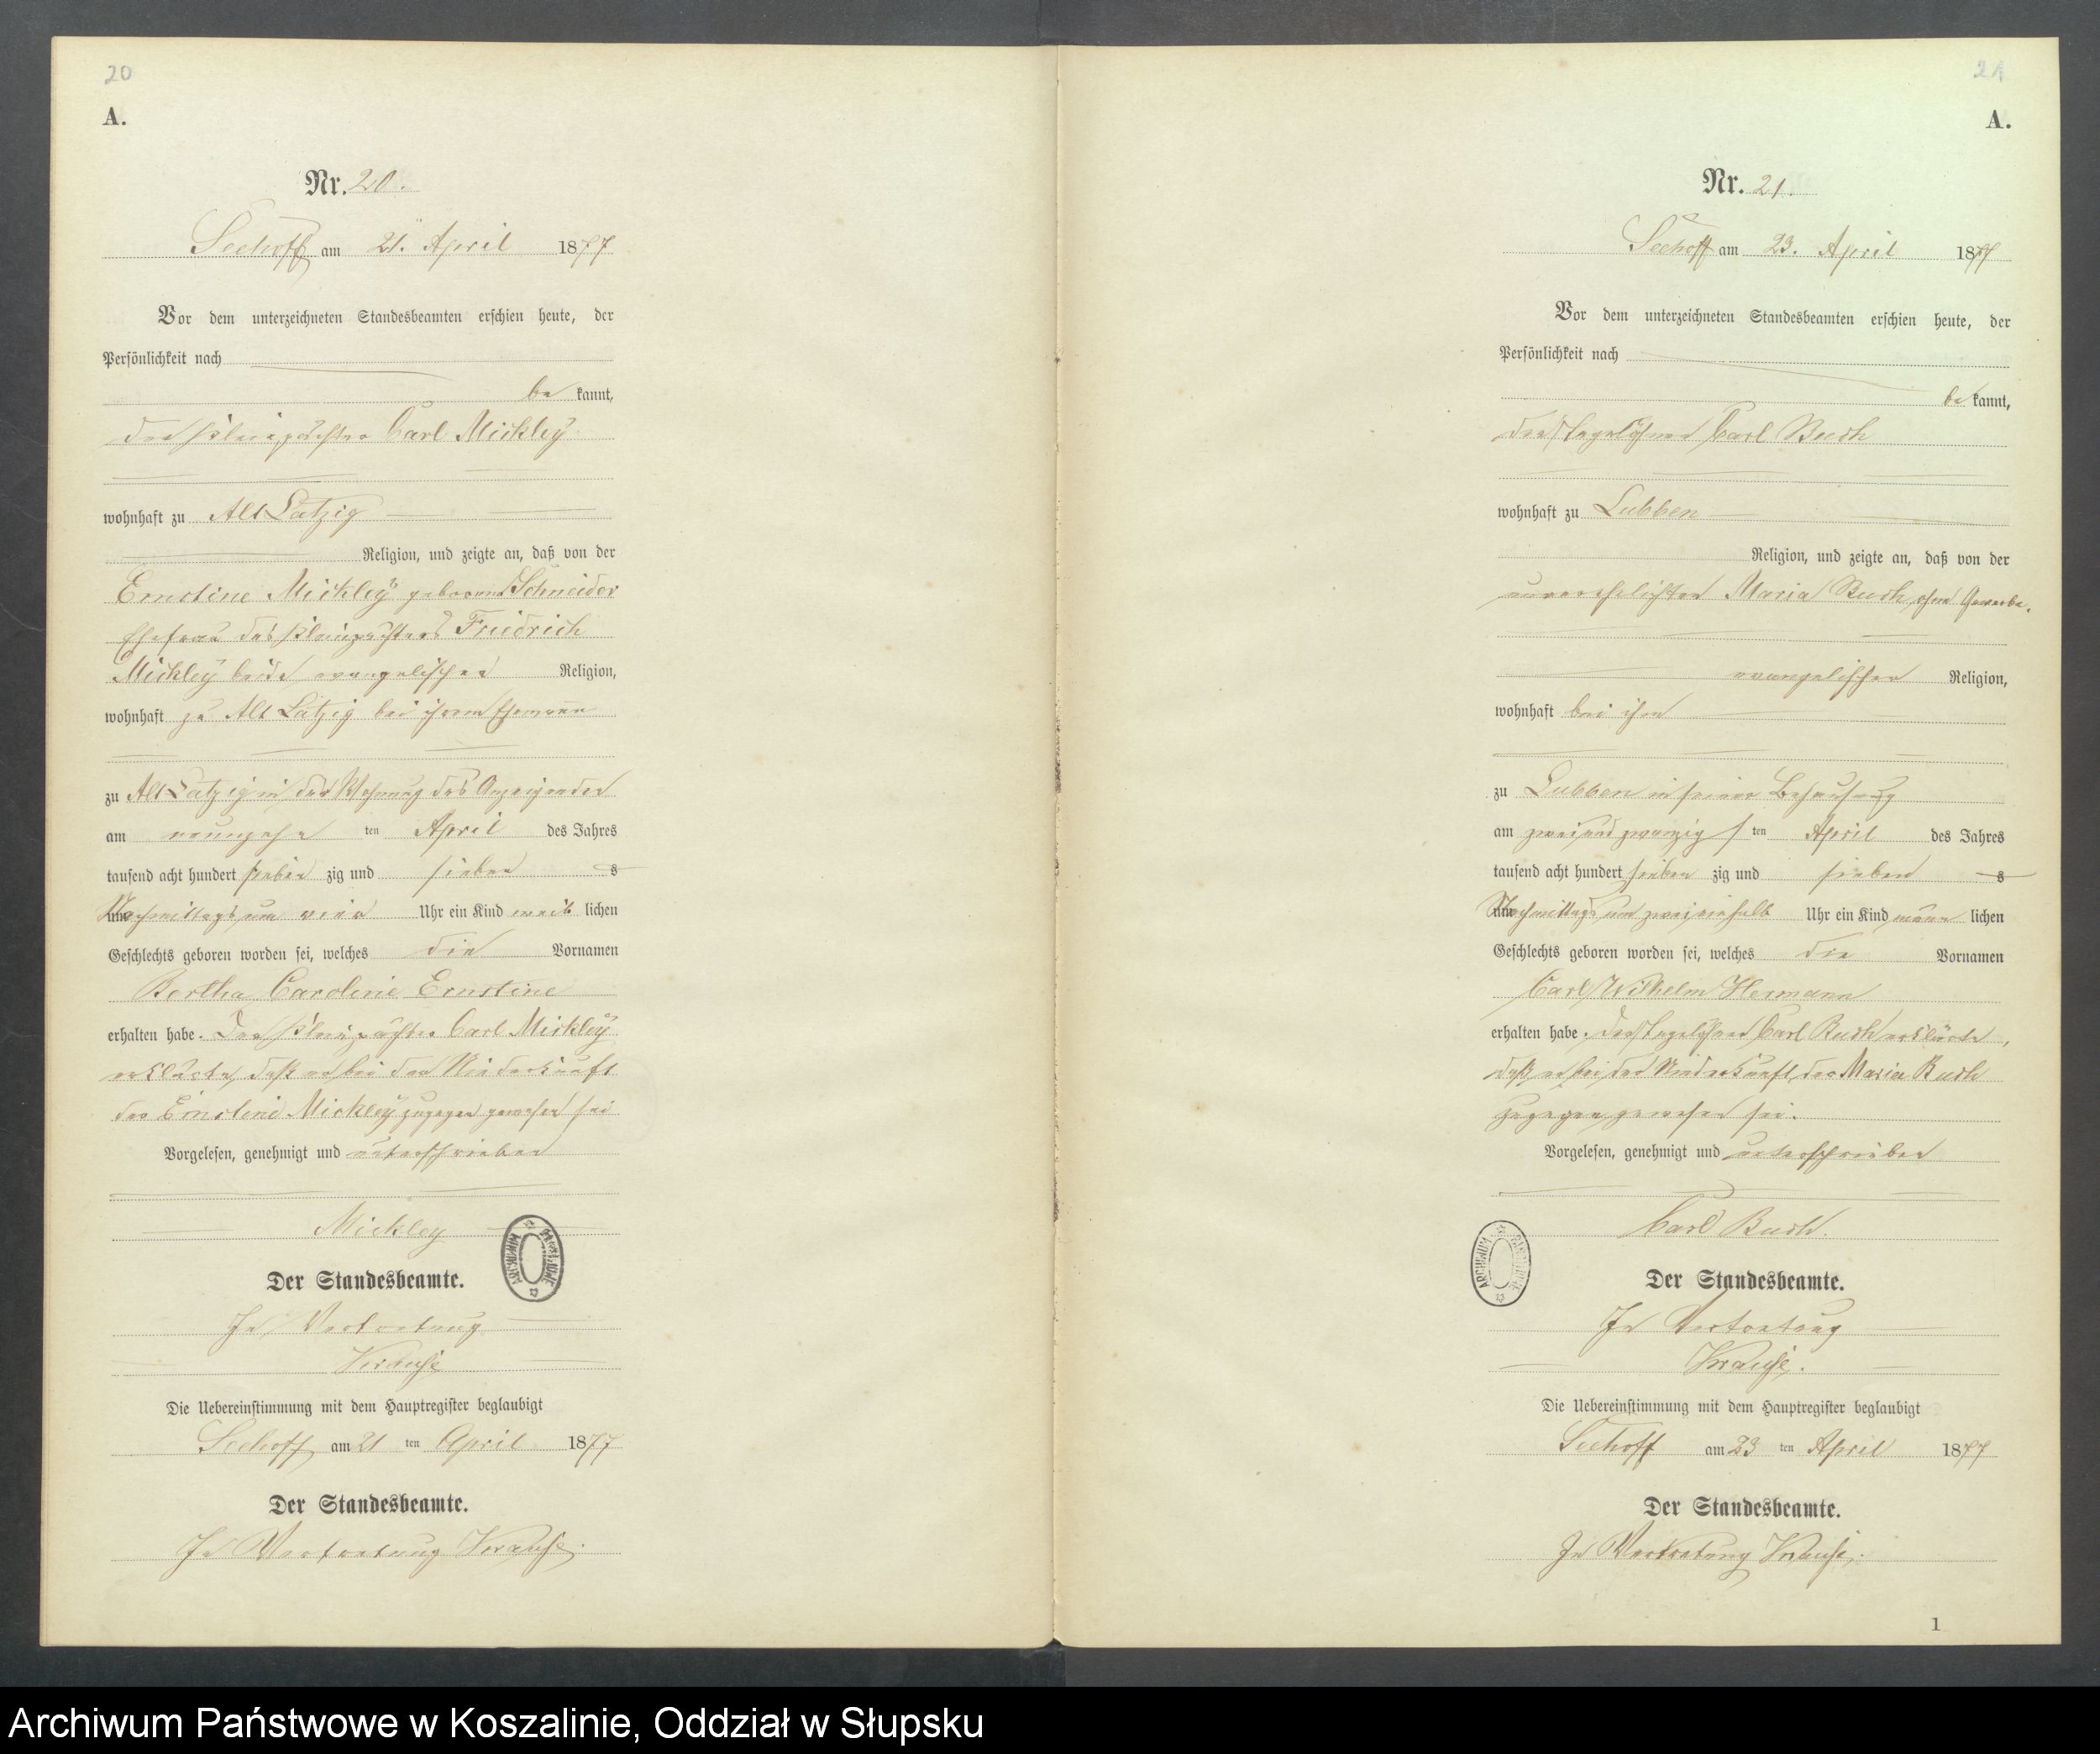 20
A.
Nr. 20.
Seehoff am 21. April 1877
Vor dem unterzeichneten Standesbeamten erschien heute, der
Persönlichkeit nach
be kannt,
der Kleinpächter Carl Mickley
wohnhaft zu Alt Latzig
Religion, und zeigte an, daß von der
Ernstine Mickley geborene Schneider
Ehefrau des Kleinpächters Friedrich
Mickley beide evangelischer Religion,
wohnhaft zu Alt Latzig bei ihrem Ehemann
zu Alt Latzig in der Wohnung des Anzeigenden
am neunzehn ten April des Jahres
tausend acht hundert sieben zig und sieben s
Nachmittags um vier Uhr ein Kind weib lichen
Geschlechts geboren worden sei, welches die Vornamen
Bertha Caroline Ernstine
erhalten habe. Der Kleinpächter Carl Mickley
erklärte, daß er bei der Niederkunft
der Ernstine Mickley zugegen gewesen sei
Vorgelesen, genehmigt und unterschrieben
Mickley
Der Standesbeamte.
In Vertretung
Krause
Die Uebereinstimmung mit dem Hauptregister beglaubigt
Seehoff am 21 ten April 1877
Der Standesbeamte.
In Vertretung Krause.
21
A.
Nr. 21.
Seehoff am 23. April 1877
Vor dem unterzeichneten Standesbeamten erschien heute, der
Persönlichkeit nach
be kannt,
der Tagelöhner Carl Bush
wohnhaft zu Lubben
Religion, und zeigte an, daß von der
unverehelichten Maria Bush, ohne Gewerbe,
evangelischer Religion,
wohnhaft bei ihm
zu Lubben in seiner Behausung
am zweiundzwanzigs ten April des Jahres
tausend acht hundert sieben zig und sieben s
Nachmittags um Uhr ein Kind männ lichen
Geschlechts geboren worden sei, welches die Vornamen
Carl Wilhelm Hermann
erhalten habe. Der Tagelöhner Carl Bush erklärte,
daß er bei der Niederkunft der Maria Bush
zugegen gewesen sei.
Vorgelesen, genehmigt und unterschrieben
Carl Bush.
Der Standesbeamte.
In Vertretung
Krause.
Die Uebereinstimmung mit dem Hauptregister beglaubigt
Seehoff am 23 ten April 1877
Der Standesbeamte.
In Vertretung Krause.
1
ARCHIWUM
Archiwum Państwowe w Koszalinie, Oddział w Słupsku